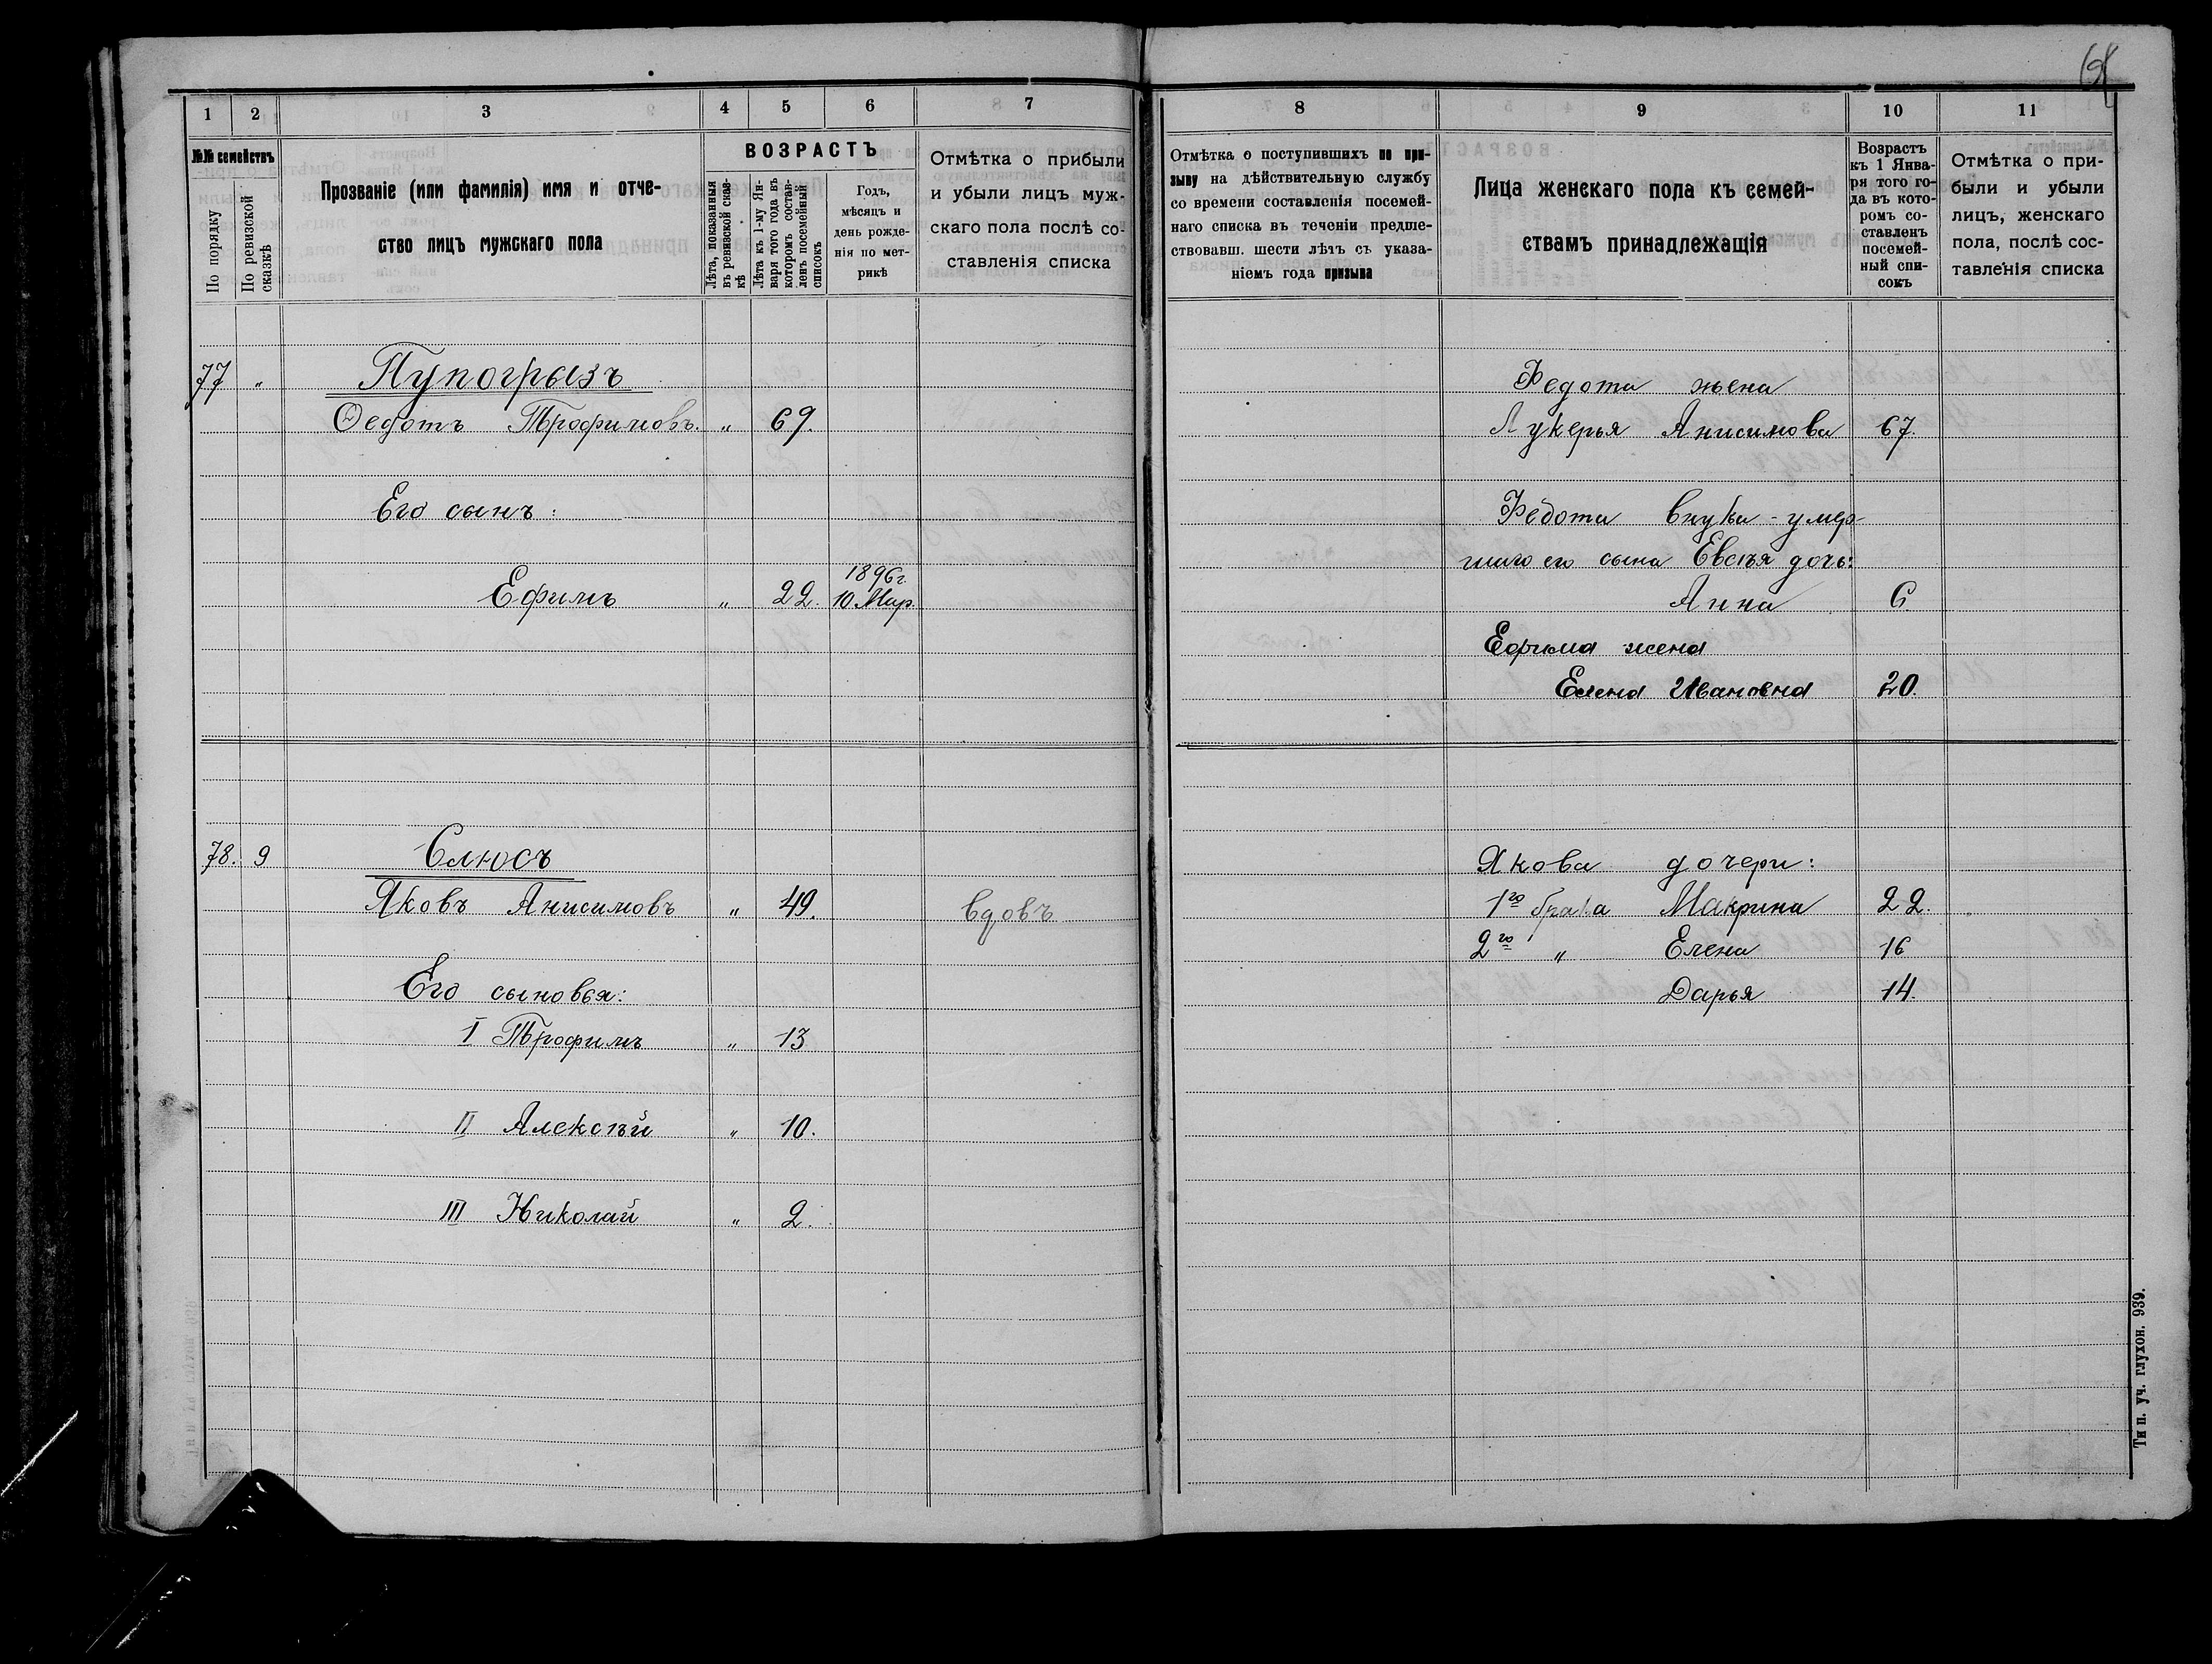 1
2
3
4
5
6
7
№№ семействъ
По порядку
По ревизской сказкѣ
Прозваніе (или фамилія) имя и отче-
ство лицъ мужскаго пола
ВОЗРАСТЪ
Лѣта, показанныя
въ ревизской сказ-
кѣ
Лѣта къ 1-му Ян-
варя того года въ
которомъ состав-
ленъ посемейный
списокъ
Годъ,
мѣсяцъ и
день рожде-
нія по мет-
рикѣ
Отмѣтка о прибыли
и убыли лицъ муж-
скаго пола послѣ со-
ставленія списка
77 „ Пупогрызъ
Ѳедотъ Трофимовъ. „ 69.
Его сынъ:
1896г.
Ефимъ „ 22. 10 Мар.
78. 9 Слюсъ
Яковъ Анисимовъ „ 49. вдовъ
Его сыновья:
I Трофимъ „ 13
II Алексѣй „ 10.
III Николай „ 2.
8
9
10
11
Отмѣтка о поступившихъ по при-
зыву на дѣйствительную службу
со времени составленія посемей-
наго списка въ теченіи предше-
ствовавш. шести лѣтъ съ указа-
ніемъ года призыва
Лица женскаго пола къ семей-
ствамъ принадлежащія
Возрастъ
къ 1 Янва-
ря того го-
да въ кото-
ромъ со-
ставленъ
посемей-
ный спи-
сокъ
Отмѣтка о при-
были и убыли
лицъ, женскаго
пола, послѣ сос-
тавленія списка
Федота жена
Лукерья Анисимова 67.
Федота внука-умер-
шаго его сына Евсѣя дочь:
Анна 6.
Ефима жена
Елена Ивановна 20.
Якова дочери:
1го брака Макрина 22.
2го „ Елена 16
Дарья 14.
Тип. уч. глухон. 939.